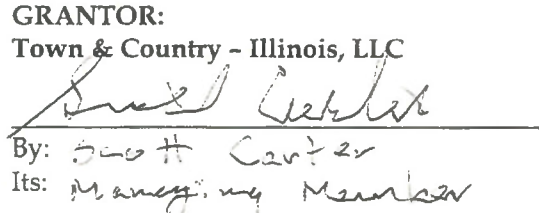 GRANTOR:
Town & Country – Illinois, LLC
By: Scott Carter
Its: Managing Member